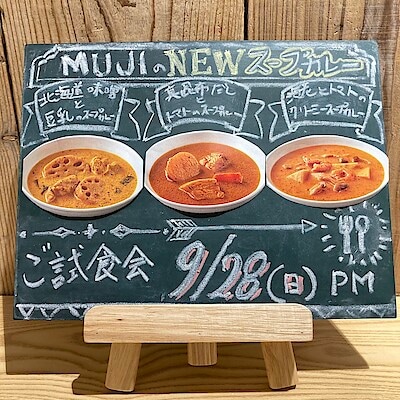 MUJIのNEWスープカレー
北海道味噌
と
豆乳のスープカレー
真昆布だし
と
トマトのスープカレー
とトマトの
クリーミースープカレー
ご試食会 9/28(日) PM